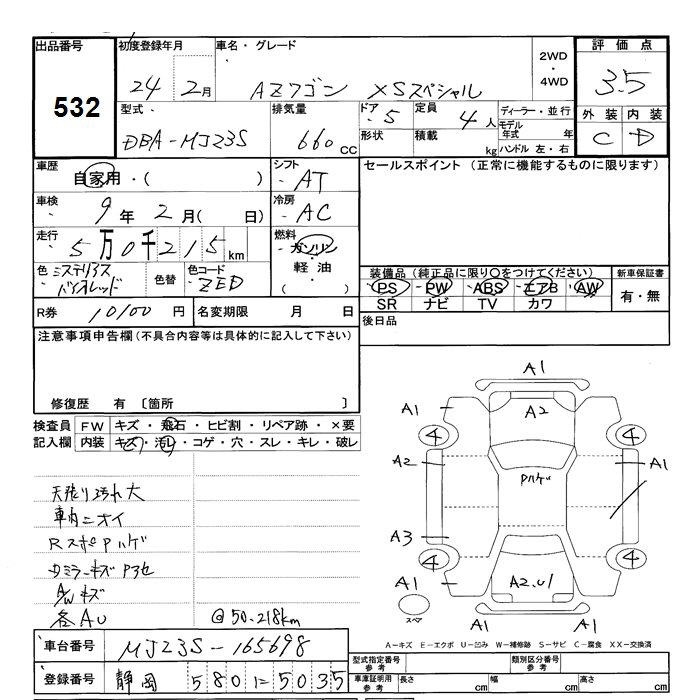 出品番号
532
初度登録年月
24 2月
車名・グレード
AZワゴン XSスペシャル
2WD
・
4WD
評価点
3.5
型式
DBA-MJ23S
排気量
660 CC
ドア 5
定員 4人
ディーラー・並行
形状
積載 kg
モデル年式 年
ハンドル 左・右
外装 内装
C D
車歴
自家用・( )
シフト
AT
セールスポイント (正常に機能するものに限ります)
車検
9年 2月( 日)
冷房
AC
走行
5万0千215km
燃料
ガソリン
軽油
( ・ )
色
ミステリアスバイオレット
色替
色コード
ZED
装備品(純正品に限り○をつけてください)
新車保証書
PS PW ABS エアB AW
有・無
SR ナビ TV カワ
R券 10100円
名変期限 月 日
後日品
注意事項申告欄(不具合内容等は具体的に記入して下さい)
修復歴 有 〔箇所 〕
検査員
記入欄
FW キズ・飛石・ヒビ割・リペア跡・×要
内装 キズ・汚レ・コゲ・穴・スレ・キレ・破レ
天張り汚れ大
車内ニオイ
RスポPハゲ
A/Wキズ
各AU
@50.218km
A1
A1 A2
4 4
A2 Pハゲ A1
A3
4 4
A1 A2.U1
スペア
A1 A1
A-キズ E-エクボ U-凹み W-補修跡 S-サビ C-腐食 XX-交換済
車台番号
MJ23S-165698
登録番号
静岡 580 い 5035
型式指定番号
参考
類別区分番号
参考
車庫証明用
参考
長さ cm 幅 cm 高さ cm